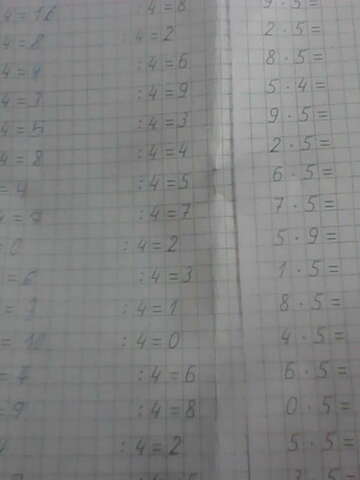 4 = 16 : 4 = 8 9 · 5 =
4 = 8 : 4 = 2 2 · 5 =
4 = 4 : 4 = 6 8 · 5 =
4 = 7 : 4 = 9 5 · 4 =
4 = 5 : 4 = 3 9 · 5 =
4 = 8 : 4 = 4 2 · 5 =
= 4 : 4 = 5 6 · 5 =
4 = 9 : 4 = 7 7 · 5 =
= 0 : 4 = 2 5 · 9 =
= 6 : 4 = 3 1 · 5 =
= : 4 = 1 8 · 5 =
= 10 : 4 = 0 4 · 5 =
= : 4 = 6 6 · 5 =
= 9 : 4 = 8 0 · 5 =
: 4 = 2 5 · 5 =